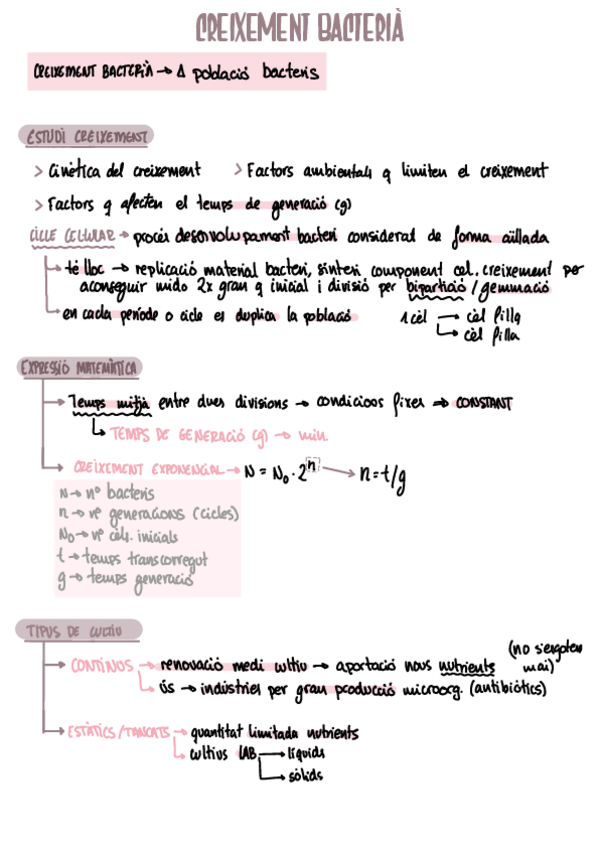 CREIXEMENT BACTERIÀ
CREIXEMENT BACTERIÀ → Δ població bacteris
ESTUDI CREIXEMENT
> Cinètica del creixement > Factors ambientals q limiten el creixement
> Factors q afecten el temps de generació (g)
CICLE CEL·LULAR → procés desenvolupament bacteri considerat de forma aïllada
té lloc → replicació material bacteri, síntesi component cel. creixement per
aconseguir mida 2x gran q inicial i divisió per bipartició / gemmació
en cada període o cicle es duplica la població 1 cèl → cèl filla
→ cèl filla
EXPRESSIÓ MATEMÀTICA
Temps mitjà entre dues divisions → condicions fixes → CONSTANT
TEMPS DE GENERACIÓ (g) → min
CREIXEMENT EXPONENCIAL → N = N₀ · 2ⁿ → n = t/g
N → nº bacteris
n → nº generacions (cicles)
N₀ → nº cèls. inicials
t → temps transcorregut
g → temps generació
TIPUS DE CULTIU
CONTINUS → renovació medi cultiu → aportació nous nutrients (no s'esgoten
mai)
ús → indústries per gran producció microorg. (antibiòtics)
ESTÀTICS/TANCATS → quantitat limitada nutrients
cultius LAB → líquids
→ sòlids